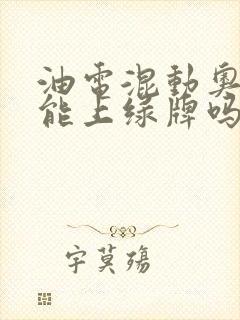 油電混動奧
能上綠牌嗎
字莫殤